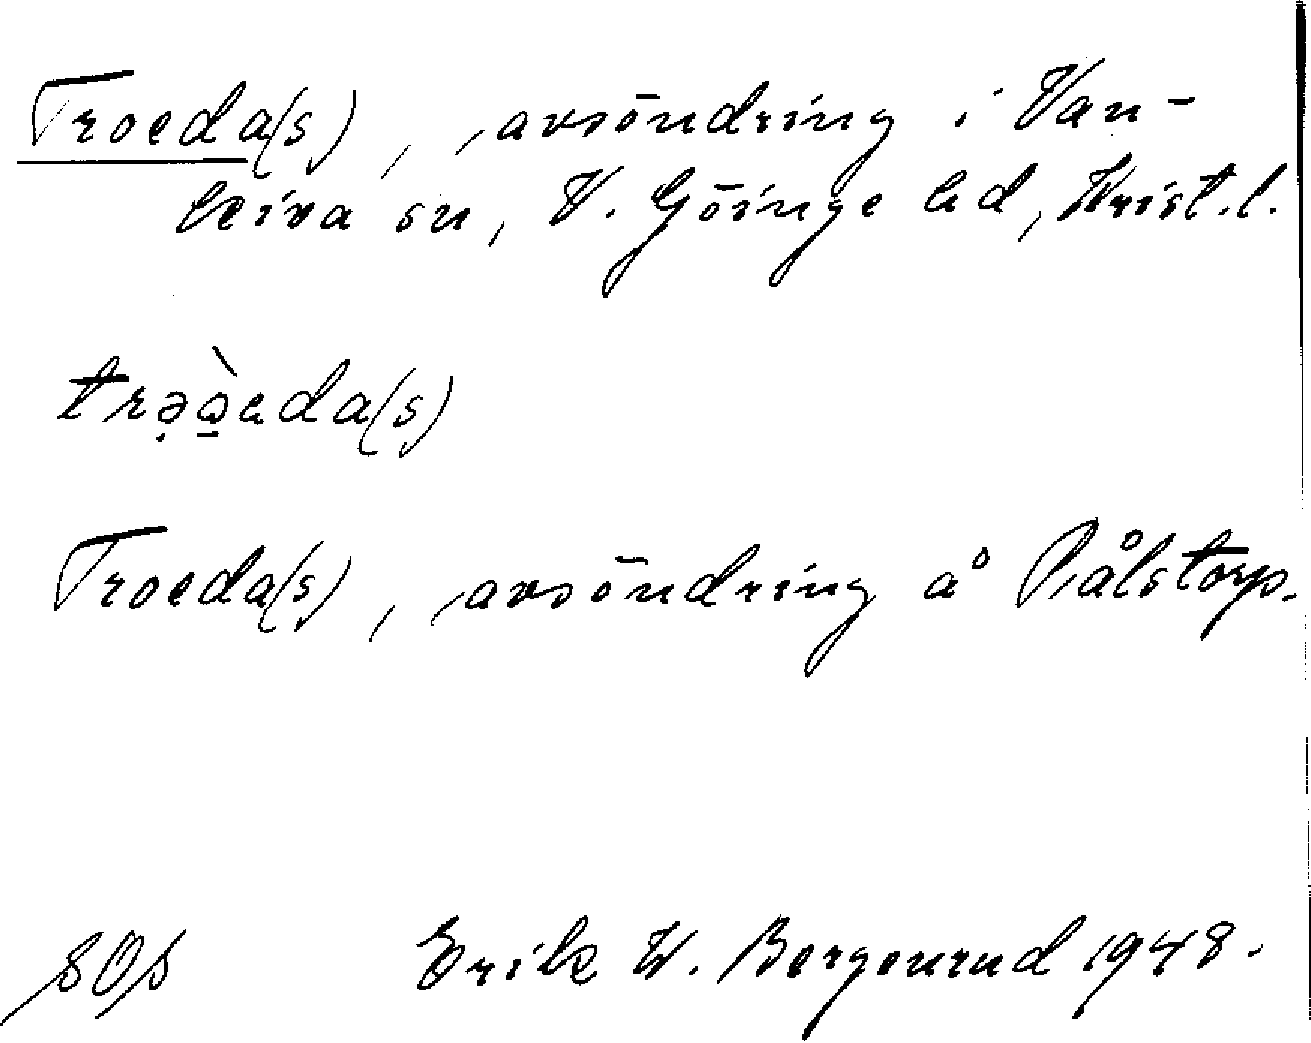 Troeda(s), avsöndring i Van-
keiva sn, V. Göinge hd, Krist.l.
trə̣ò̱eda(s)
Troeda(s), avsöndring å Pålstorp.
SOS Erik W. Bergenrud 1948.